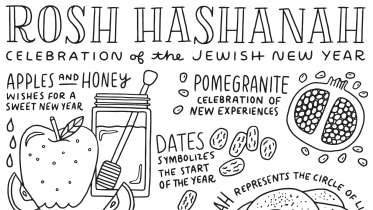 ROSH HASHANAH
CELEBRATION of the JEWISH NEW YEAR
APPLES AND HONEY
WISHES FOR A
SWEET NEW YEAR
POMEGRANITE
CELEBRATION OF
NEW EXPERIENCES
DATES
SYMBOLIZES
THE START
OF THE YEAR
AH REPRESENTS THE CIRCLE OF L